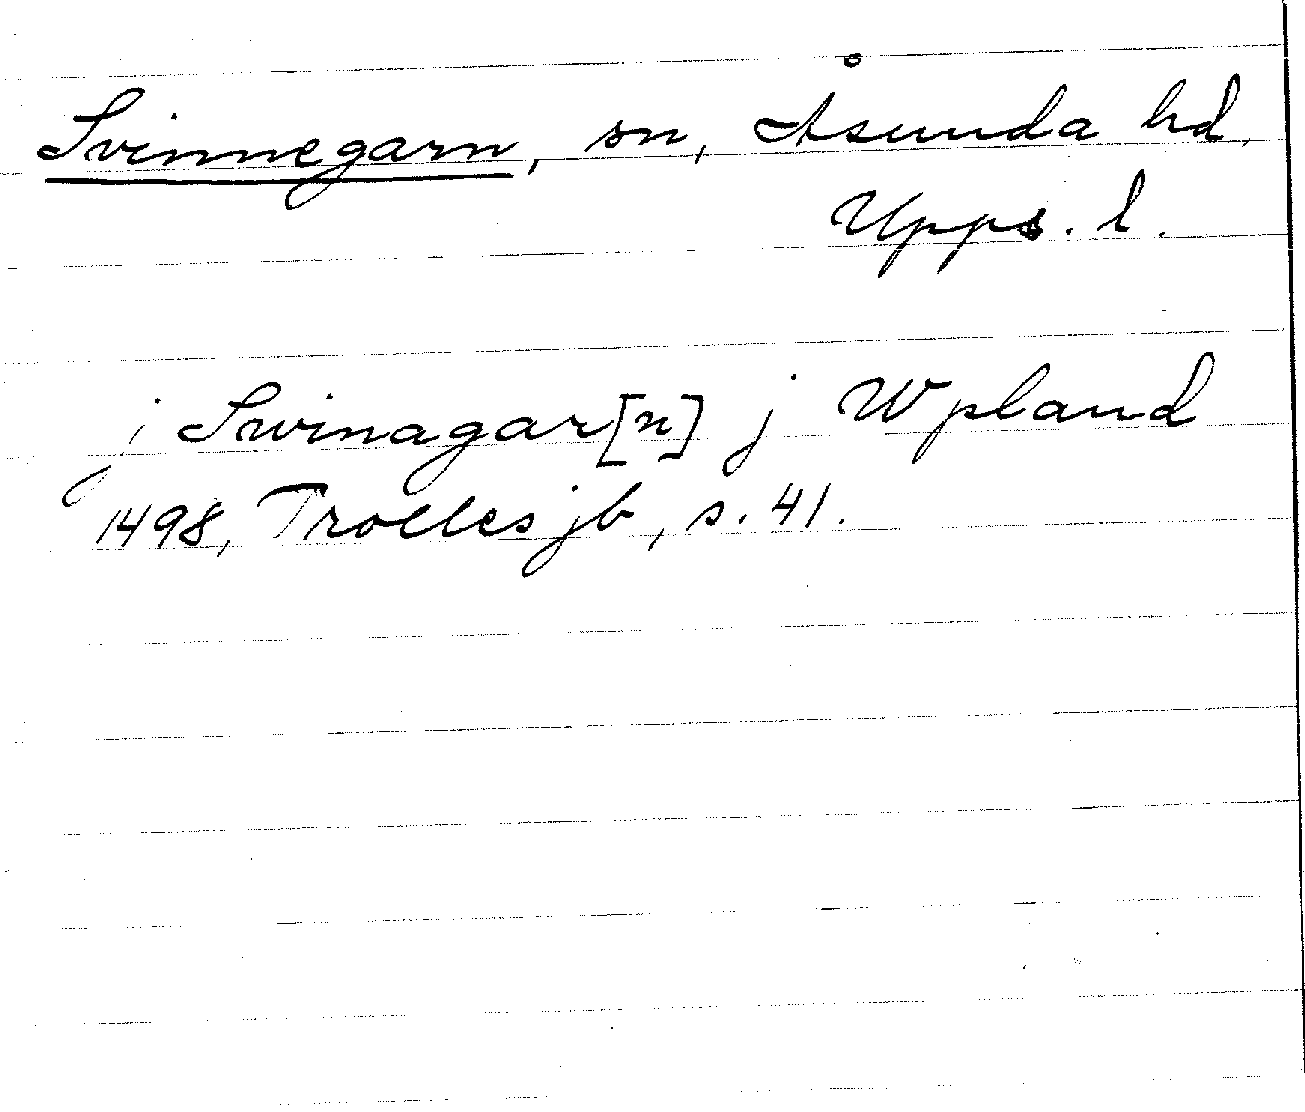 Svinnegarn, sn, Åsunda hd,
Upps. l.
j Swinagar[n] j Wpland
1498, Trolles jb, s. 41.